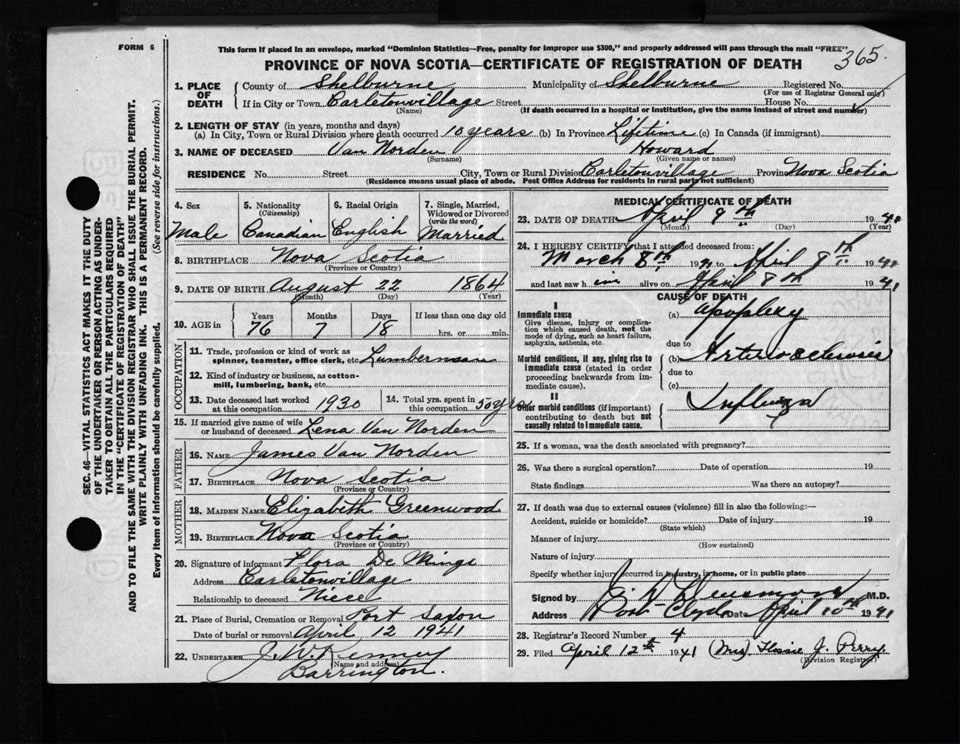 FORM 6
This form if placed in an envelope, marked "Dominion Statistics—Free, penalty for improper use $300," and properly addressed will pass through the mail "FREE"
365.
PROVINCE OF NOVA SCOTIA—CERTIFICATE OF REGISTRATION OF DEATH
1. PLACE OF DEATH
County of Shelburne Municipality of Shelburne Registered No.
(For use of Registrar General only)
If in City or Town Carletonvillage Street House No.
(Name) (If death occurred in a hospital or institution, give the name instead of street and number)
2. LENGTH OF STAY (in years, months and days)
(a) In City, Town or Rural Division where death occurred 10 years (b) In Province Lifetime (c) In Canada (if immigrant)
3. NAME OF DECEASED Van Norden Howard
(Surname) (Given name or names)
RESIDENCE No. Street City, Town or Rural Division Carletonvillage Province Nova Scotia
(Residence means usual place of abode. Post Office Address for residents in rural parts not sufficient)
4. Sex
Male
5. Nationality (Citizenship)
Canadian
6. Racial Origin
English
7. Single, Married, Widowed or Divorced (write the word)
Married
8. BIRTHPLACE Nova Scotia
(Province or Country)
9. DATE OF BIRTH August 22 1864
(Month) (Day) (Year)
10. AGE in Years Months Days If less than one day old
76 7 18 hrs. or min.
OCCUPATION
11. Trade, profession or kind of work as spinner, teamster, office clerk, etc. Lumberman
12. Kind of industry or business, as cotton-mill, lumbering, bank, etc.
13. Date deceased last worked at this occupation 1930
14. Total yrs. spent in this occupation 50 yrs
15. If married give name of wife or husband of deceased Lena Van Norden
FATHER
16. NAME James Van Norden
17. BIRTHPLACE Nova Scotia
(Province or Country)
MOTHER
18. MAIDEN NAME Elizabeth Greenwood
19. BIRTHPLACE Nova Scotia
(Province or Country)
20. Signature of informant Flora De Mings
Address Carletonvillage
Relationship to deceased Niece
21. Place of Burial, Cremation or Removal Port Saxon
Date of burial or removal April 12 1941
22. UNDERTAKER J. W. Kenney
(Name and address)
Barrington.
MEDICAL CERTIFICATE OF DEATH
23. DATE OF DEATH April 9th 1941
(Month) (Day) (Year)
24. I HEREBY CERTIFY that I attended deceased from:
March 8th 1941 to April 8th 1941
and last saw him alive on April 8th 1941
CAUSE OF DEATH
I
Immediate cause
Give disease, injury or complication which caused death, not the mode of dying, such as heart failure, asphyxia, asthenia, etc.
(a) Apoplexy
due to
Morbid conditions, if any, giving rise to immediate cause (stated in order proceeding backwards from immediate cause).
(b) Arteriosclerosis
due to
(c)
II
Other morbid conditions (if important) contributing to death but not causally related to immediate cause.
Influenza
25. If a woman, was the death associated with pregnancy?
26. Was there a surgical operation? Date of operation 19
State findings Was there an autopsy?
27. If death was due to external causes (violence) fill in also the following:—
Accident, suicide or homicide? Date of injury 19
(State which)
Manner of injury
(How sustained)
Nature of injury
Specify whether injury occurred in industry, in home, or in public place
Signed by M.D.
Address Port Clyde Date April 10th 1941
28. Registrar's Record Number 4
29. Filed April 12th 1941 (Mrs) J. Perry
(Division Registrar)
SEC. 46—VITAL STATISTICS ACT MAKES IT THE DUTY
OF THE UNDERTAKER OR PERSON ACTING AS UNDER-
TAKER TO OBTAIN ALL THE PARTICULARS REQUIRED
IN THE "CERTIFICATE OF REGISTRATION OF DEATH"
AND TO FILE THE SAME WITH THE DIVISION REGISTRAR WHO SHALL ISSUE THE BURIAL PERMIT.
WRITE PLAINLY WITH UNFADING INK. THIS IS A PERMANENT RECORD.
Every item of information should be carefully supplied. (See reverse side for instructions.)